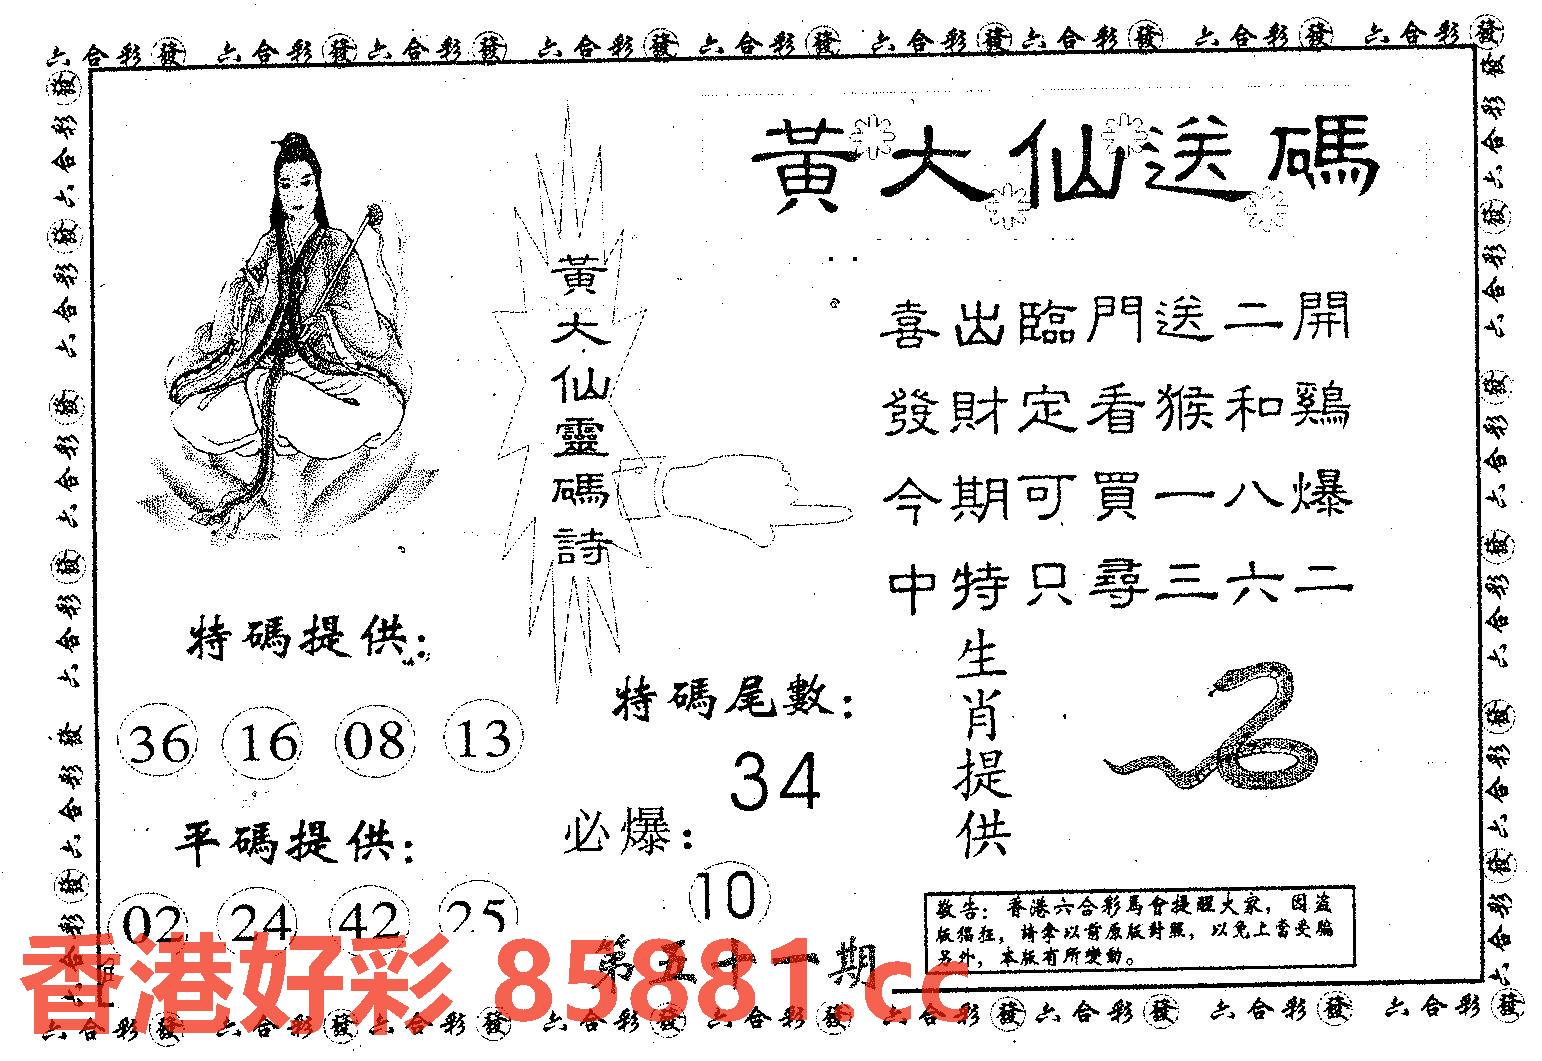 六合彩發 六合彩發 六合彩發 六合彩發 六合彩發 六合彩發 六合彩發 六合彩發 六合彩發
黃大仙送碼
黃大仙靈碼詩
喜出臨門送二開
發財定看猴和鷄
今期可買一八爆
中特只尋三六二
特碼提供：
36 16 08 13
平碼提供：
02 24 42 25
特碼尾數：
34
必爆：
10
第五十一期
生肖提供
敬告：香港六合彩馬會提醒大家，因盜
版猖狂，請拿以前原版對照，以免上當受騙
另外，本版有所變動。
香港好彩 85881.cc
六合彩發 六合彩發 六合彩發 六合彩發 六合彩發 六合彩發 六合彩發 六合彩發 六合彩發